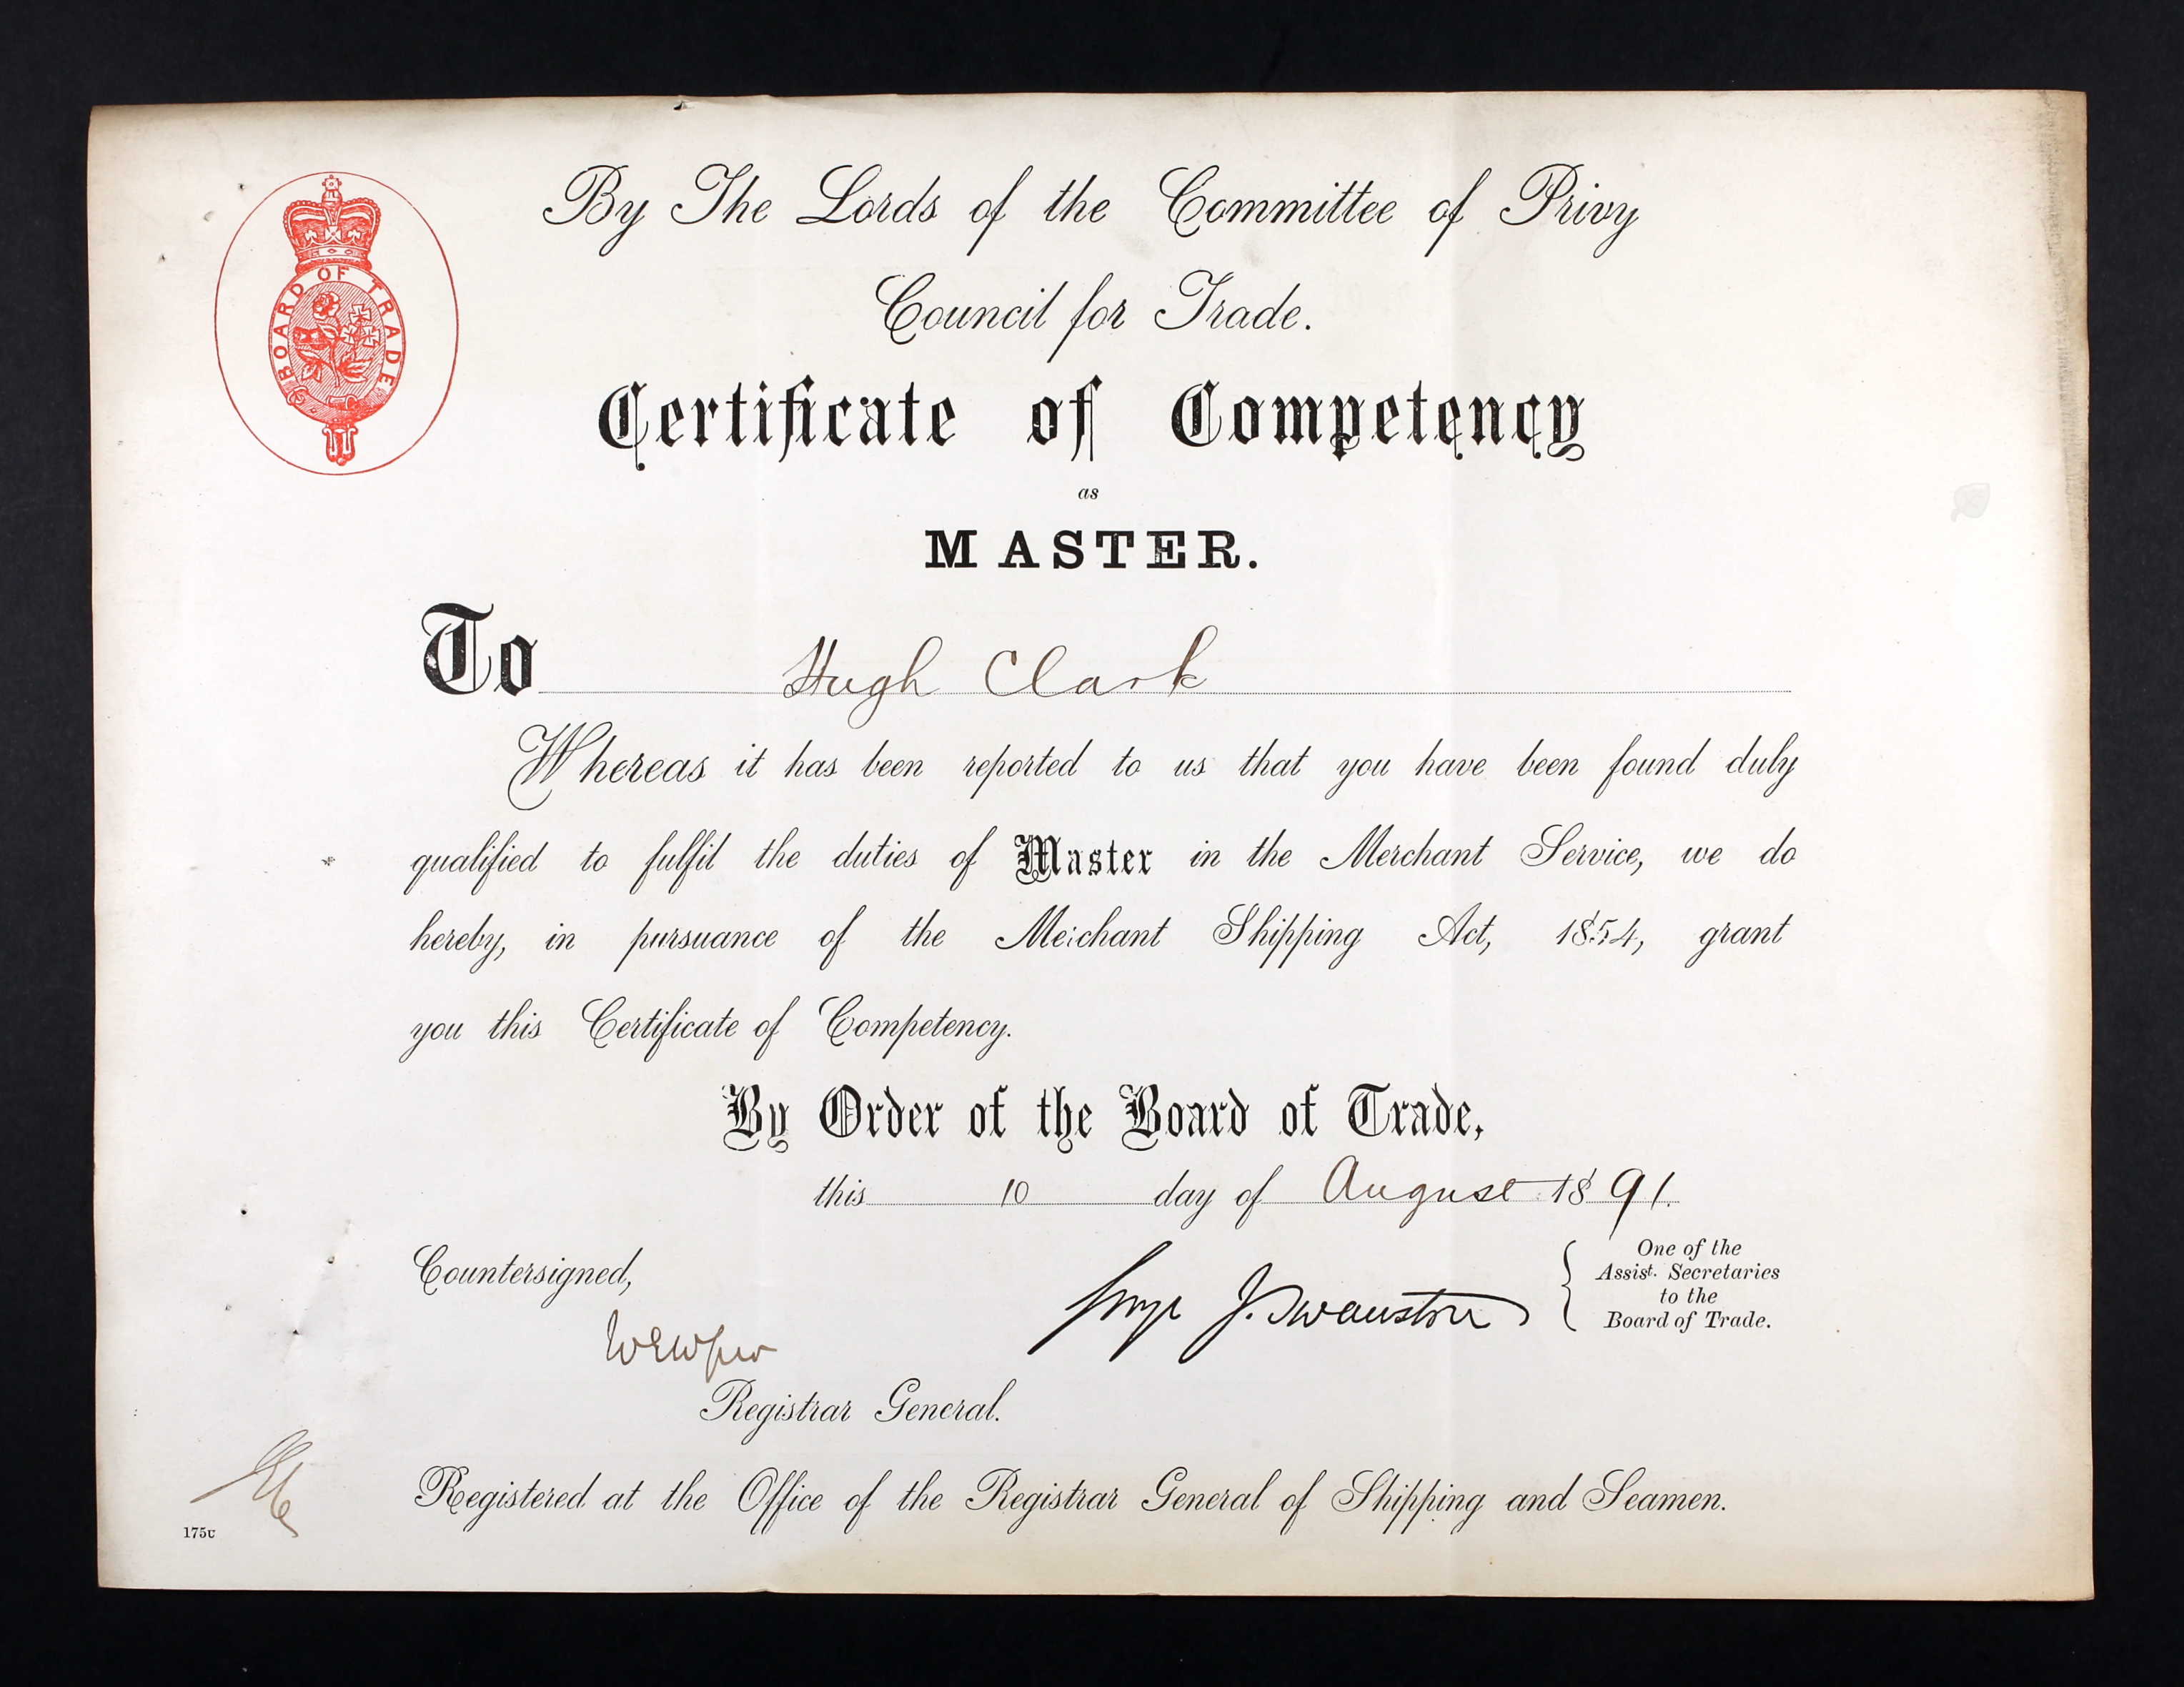 BOARD OF TRADE
By The Lords of the Committee of Privy
Council for Trade.
Certificate of Competency
as
MASTER.
To Hugh Clark
Whereas it has been reported to us that you have been found duly
qualified to fulfil the duties of Master in the Merchant Service, we do
hereby, in pursuance of the Merchant Shipping Act, 1854, grant
you this Certificate of Competency.
By Order of the Board of Trade,
this 10 day of August 1891.
Countersigned,
J. Swanston
One of the
Assist. Secretaries
to the
Board of Trade.
Registrar General.
Registered at the Office of the Registrar General of Shipping and Seamen.